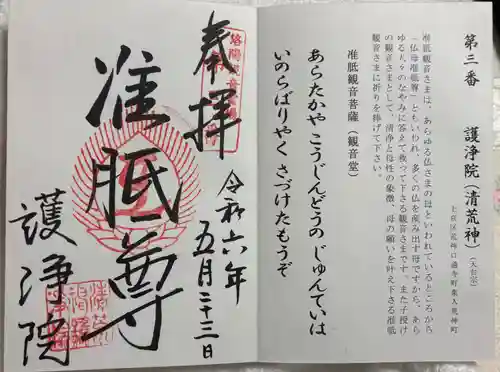 第三番　護浄院（清荒神）（天台宗）
上京区荒神口通寺町東入荒神町
准胝観音さまは、あらゆる仏さまの母といわれているところから
「仏母准胝尊」ともいわれ、多くの仏を産み出す母ですから、あら
ゆる人々のなやみに答えて救って下さる観音さまです。また子授け
の観音さまとして、清浄と母性の象徴、母の願いを叶え下さる准胝
観音さまに祈りを捧げて下さい。
准胝観音菩薩（観音堂）
あらたかや こうじんどうの じゅんていは
いのらばりやく さづけたもうぞ
奉拝
洛陽観音
令和六年
五月二十三日
准胝尊
護浄院